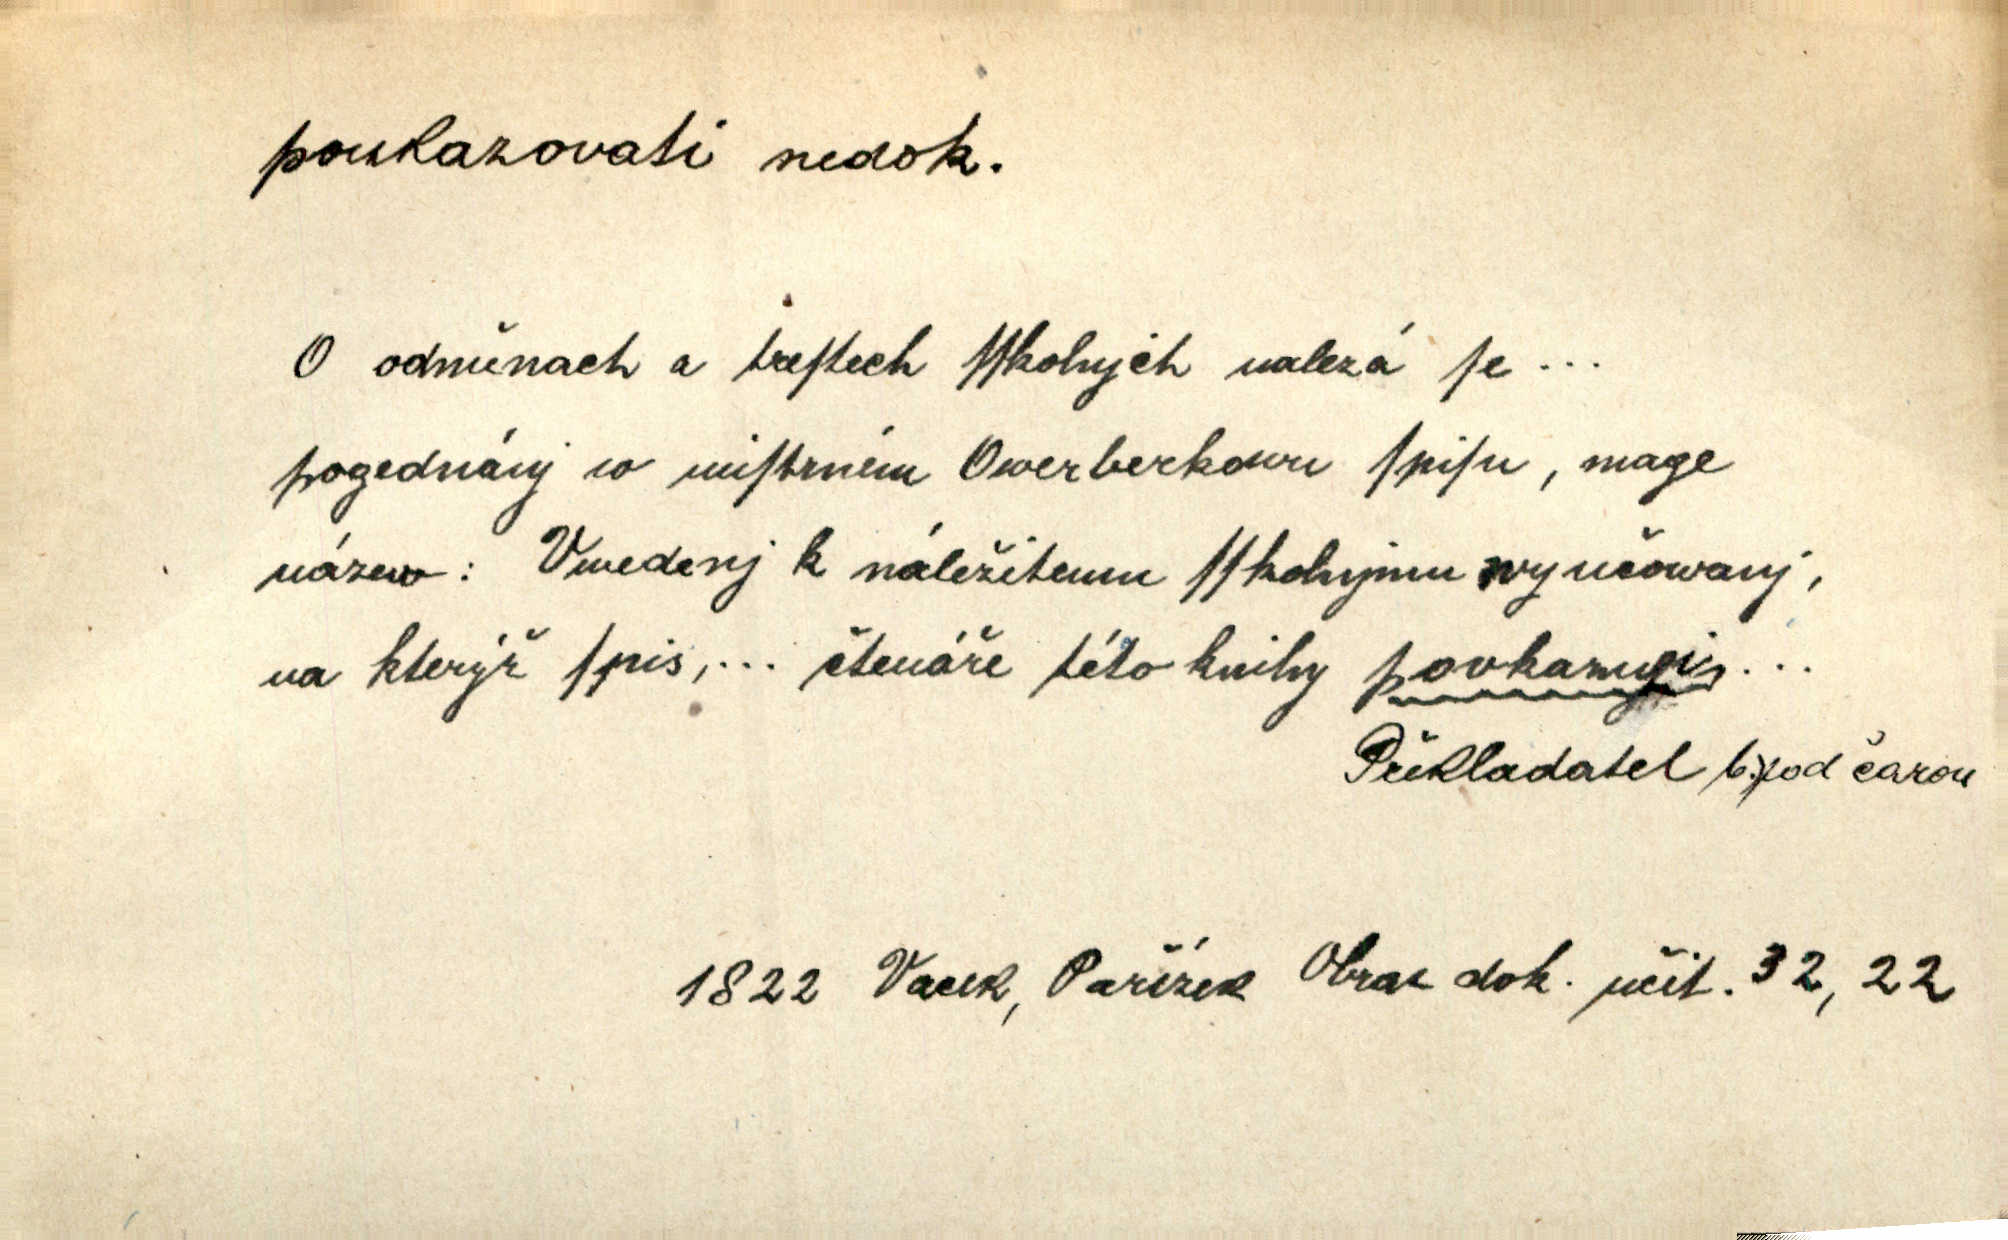 poukazovati nedok.
O odměnach a treſtech ſſkolnjch nalezá ſe ...
pogednánj w miſtrném Owerberkowu ſpiſu, mage
název: Vwedenj k náležitemu ſſkolnjmu wyučowanj,
na kterýž ſpis, ... čtenáře této knihy povkazugi ...
Překladatel b.) pod čarou
1822 Vacek, Pařízek Obraz dok. učit. 32, 22